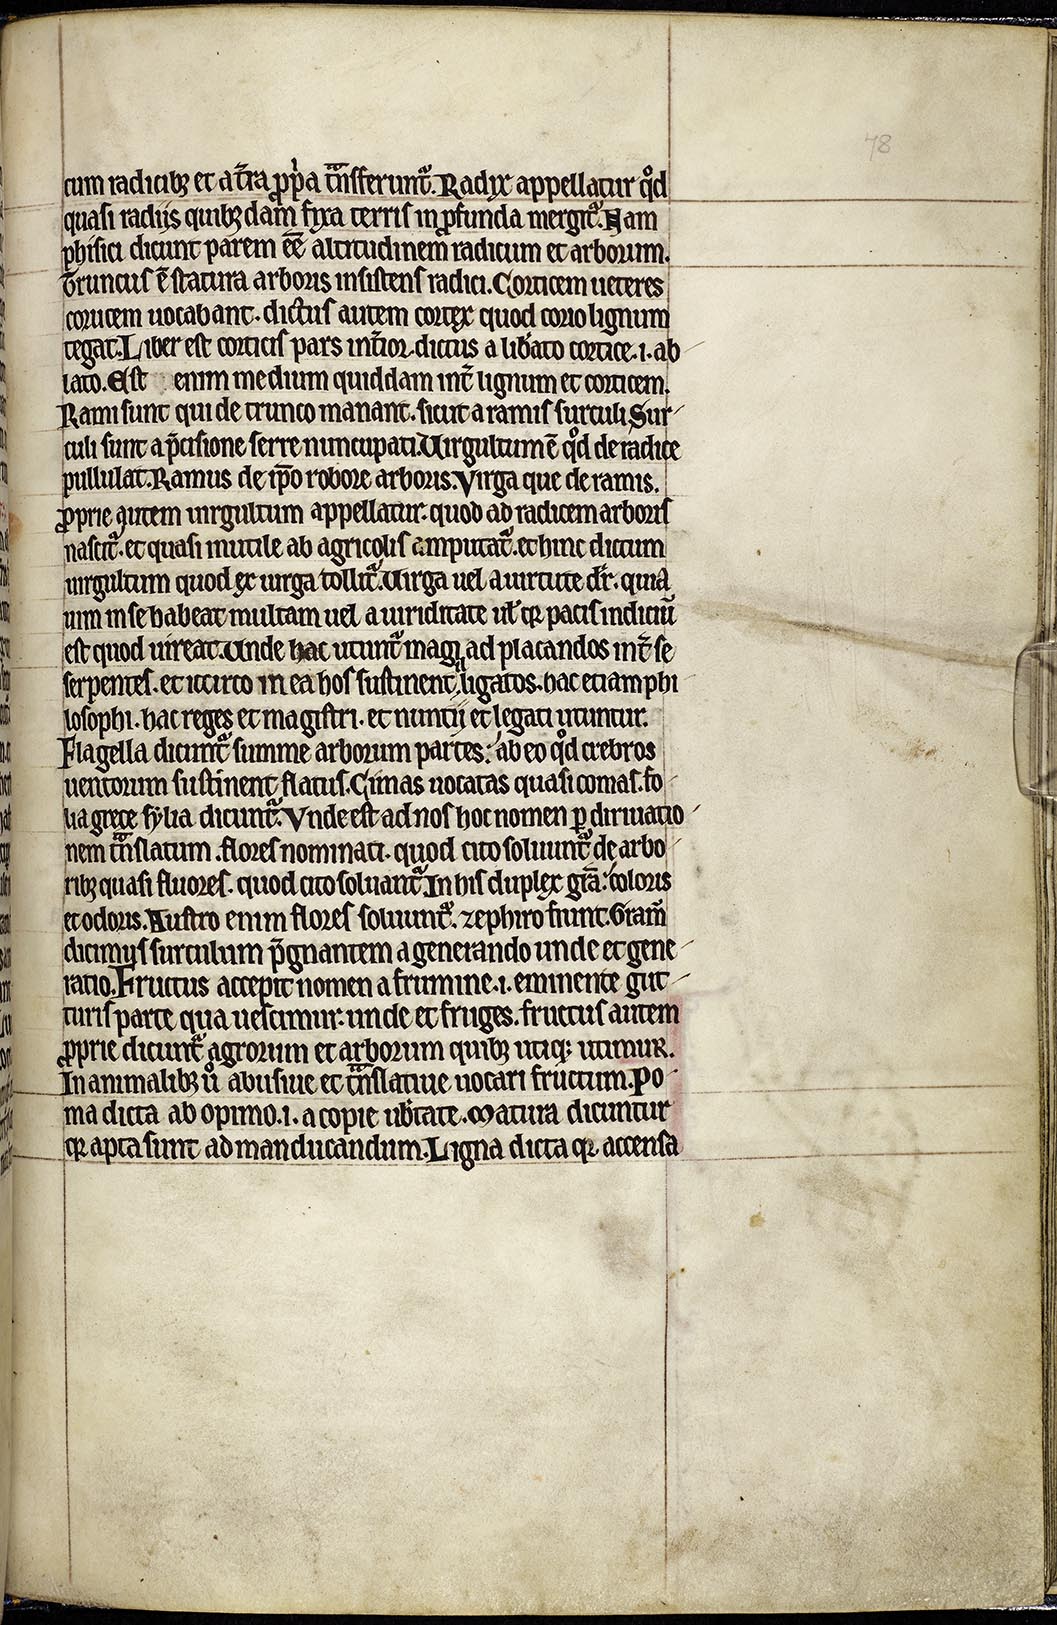 78
cum radicibꝫ et at̃ra ꝓp̱a tᷓnsferuntᷣ. Radix appellatur qͦd
quasi radijs quibꝫdam̃ fixa terris in ꝓfunda mergitᷣ. Nam
phisici dicunt parem eē̃ altitudinem radicum et arborum.
Truncus ē statura arboris insistens radici. Corticem ueteres
corucem uocabant. dictus autem cortex quod corio lignum
tegat. Liber est corticis pars int̃ior. dictus a lib̃ato cortice .i. ab
lato. Est enim medium quiddam int̃ lignum et corticem.
Rami sunt qui de trunco manant. sicut a ramis surculi. Sur
culi sunt a p̃cisione serre nuncupati. Virgultum ē qͦd de radice
pullulat. Ramus de ip̃o robore arboris. Virga que de ramis.
ꝓprie autem uirgultum appellatur. quod ad radicem arboris
nascitᷣ. et quasi inutile ab agricolis amputatᷣ. et hinc dictum
uirgultum quod ex uirga tollitᷣ. Virga uel a uirtute dr̃. quia
uim in se habeat multam uel a uiriditate ul̃ qꝛ pacis indiciū
est quod uireat. Vnde hac utuntᷣ magi ad placandos int̃ se
serpentes. et iccirco in ea hos sustinent ligatos. hac etiam phi
losophi. hac reges et magistri. et nuntij et legati utuntur.
Flagella dicuntᷣ summe arborum partes. ab eo qͦd crebros
uentorum sustinent flatus. Cimas uocatas quasi comas. fo
lia grece fylia dicuntᷣ. Vnde est ad nos hoc nomen ꝑ diriuatio
nem tᷓnslatum. flores nominati. quod cito soluuntᷣ de arbo
ribꝫ quasi fluores. quod cito soluantᷣ. In his duplex gr̃a. coloris
et odoris. Austro enim flores soluuntᷣ. zephiro fiunt. Gram̃
dicimus surculum p̃gnantem a generando unde et gene
ratio. Fructus accepit nomen a frumine .i. eminente gut
turis parte qua uescimur. unde et fruges. fructus autem
ꝓprie dicuntᷣ agrorum et arborum quibꝫ utiqꝫ utimur.
In animalibꝫ uͦ abusiue et tᷓnslatiue uocari fructum. Po
ma dicta ab opimo .i. a copie ub̃tate. Matura dicuntur
qꝛ apta sunt ad manducandum. Ligna dicta qꝛ accensa